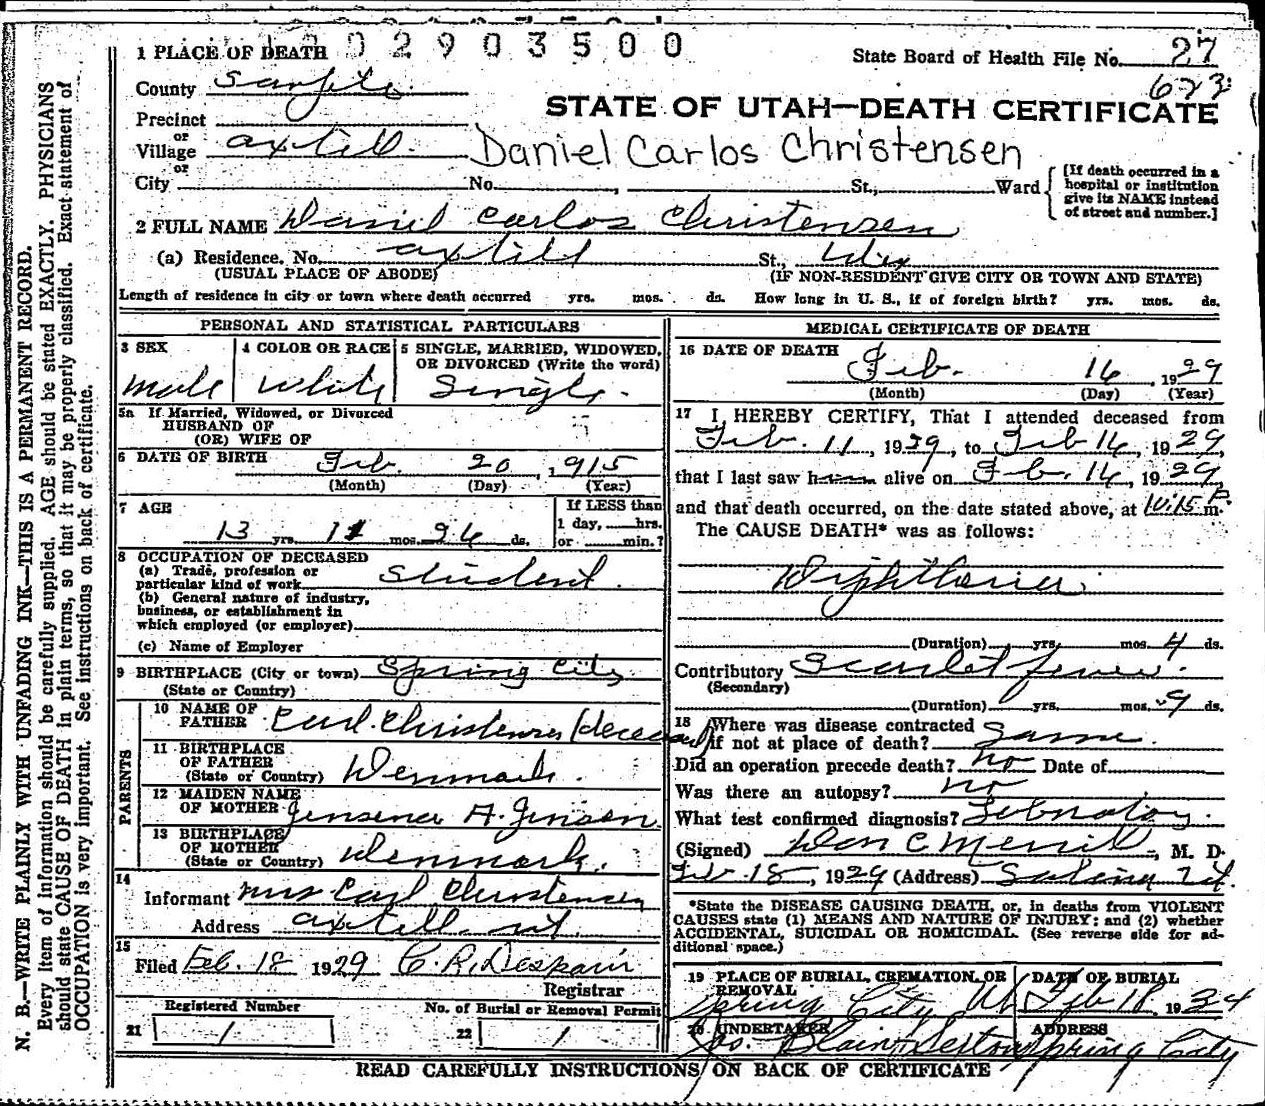 1 PLACE OF DEATH
02903500
State Board of Health File No. 27
623
County Sanpete
STATE OF UTAH—DEATH CERTIFICATE
Precinct
or
Village axtell.
or
Daniel Carlos Christensen
City No. , St., Ward
[If death occurred in a
hospital or institution
give its NAME instead
of street and number.]
2 FULL NAME Daniel Carlos Christensen
(a) Residence. No. axtell St.,
(USUAL PLACE OF ABODE) (IF NON-RESIDENT GIVE CITY OR TOWN AND STATE)
Length of residence in city or town where death occurred yrs. mos. ds. How long in U. S., if of foreign birth? yrs. mos. ds.
PERSONAL AND STATISTICAL PARTICULARS
3 SEX
male
4 COLOR OR RACE
White
5 SINGLE, MARRIED, WIDOWED,
OR DIVORCED (Write the word)
Single.
5a If Married, Widowed, or Divorced
HUSBAND OF
(OR) WIFE OF
6 DATE OF BIRTH Feb. 20, 1915
(Month) (Day) (Year)
7 AGE
13 yrs. 11 mos. 26 ds.
If LESS than
1 day, hrs.
or min.?
8 OCCUPATION OF DECEASED
(a) Trade, profession or
particular kind of work student.
(b) General nature of industry,
business, or establishment in
which employed (or employer)
(c) Name of Employer
9 BIRTHPLACE (City or town) Spring City
(State or Country)
PARENTS
10 NAME OF
FATHER Carl Christensen (deceased)
11 BIRTHPLACE
OF FATHER
(State or Country) Denmark.
12 MAIDEN NAME
OF MOTHER Jensena A. Jensen
13 BIRTHPLACE
OF MOTHER
(State or Country) Denmark.
14
Informant Mrs Carl Christensen
Address axtell ut.
15
Filed Feb. 18 1929 C. R. Despain
Registrar
Registered Number
21 1
No. of Burial or Removal Permit
22 1
MEDICAL CERTIFICATE OF DEATH
16 DATE OF DEATH
Feb. 16, 1929
(Month) (Day) (Year)
17 I HEREBY CERTIFY, That I attended deceased from
Feb. 11, 1929, to Feb 16, 1929,
that I last saw h alive on Feb. 16, 1929,
and that death occurred, on the date stated above, at 10:15 P. m.
The CAUSE DEATH* was as follows:
Diphtheria
(Duration) yrs. mos. 4 ds.
Contributory Scarlet fever.
(Secondary)
(Duration) yrs. mos. 9 ds.
18 Where was disease contracted
if not at place of death? Same.
Did an operation precede death? no Date of
Was there an autopsy? no
What test confirmed diagnosis? Labratory.
(Signed) Don C Merrill, M. D.
Feb. 18, 1929 (Address) Salina Ut.
*State the DISEASE CAUSING DEATH, or, in deaths from VIOLENT
CAUSES state (1) MEANS AND NATURE OF INJURY; and (2) whether
ACCIDENTAL, SUICIDAL OR HOMICIDAL. (See reverse side for ad-
ditional space.)
19 PLACE OF BURIAL, CREMATION, OR
REMOVAL
Spring City Ut
DATE OF BURIAL
Feb 18, 1934
20 UNDERTAKER
Jos. Blain
ADDRESS
Spring City
READ CAREFULLY INSTRUCTIONS ON BACK OF CERTIFICATE
N. B.—WRITE PLAINLY WITH UNFADING INK—THIS IS A PERMANENT RECORD.
Every item of information should be carefully supplied. AGE should be stated EXACTLY. PHYSICIANS
should state CAUSE OF DEATH in plain terms, so that it may be properly classified. Exact statement of
OCCUPATION is very important. See instructions on back of certificate.